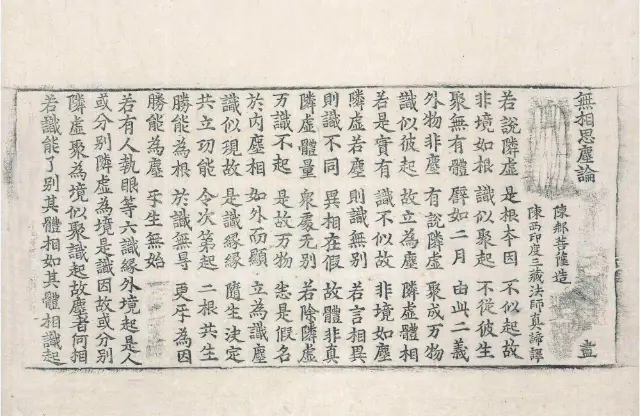 無相思塵論 盡
陳郍菩薩造
陳西印度三藏法師真諦譯
若說隣虛 是根本因 不似起故
非境如根 識似聚起 不從彼生
聚無有體 譬如二月 由此二義
外物非塵 有說隣虛 聚成万物
識似彼起 故立為塵 隣虛體相
若是實有 識不似故 非境如塵
隣虛若塵 則識無別 若言相異
則識不同 異相在假 故體非真
隣虛體量 衆處无别 若除隣虛
万識不起 是故万物 悉是假名
於內塵相 如外而顯 立為識塵
識似現故 是識緣緣 隨生决定
共立功能 令次第起 二根共生
勝能為根 於識無㝵 更乎為因
勝能為塵 乎生無始
若有人執眼等六識緣外境起是人
或分別隣虛為境是識因故或分別
隣虛聚為境似聚識起故塵者何相
若識能了别其體相如其體相識起